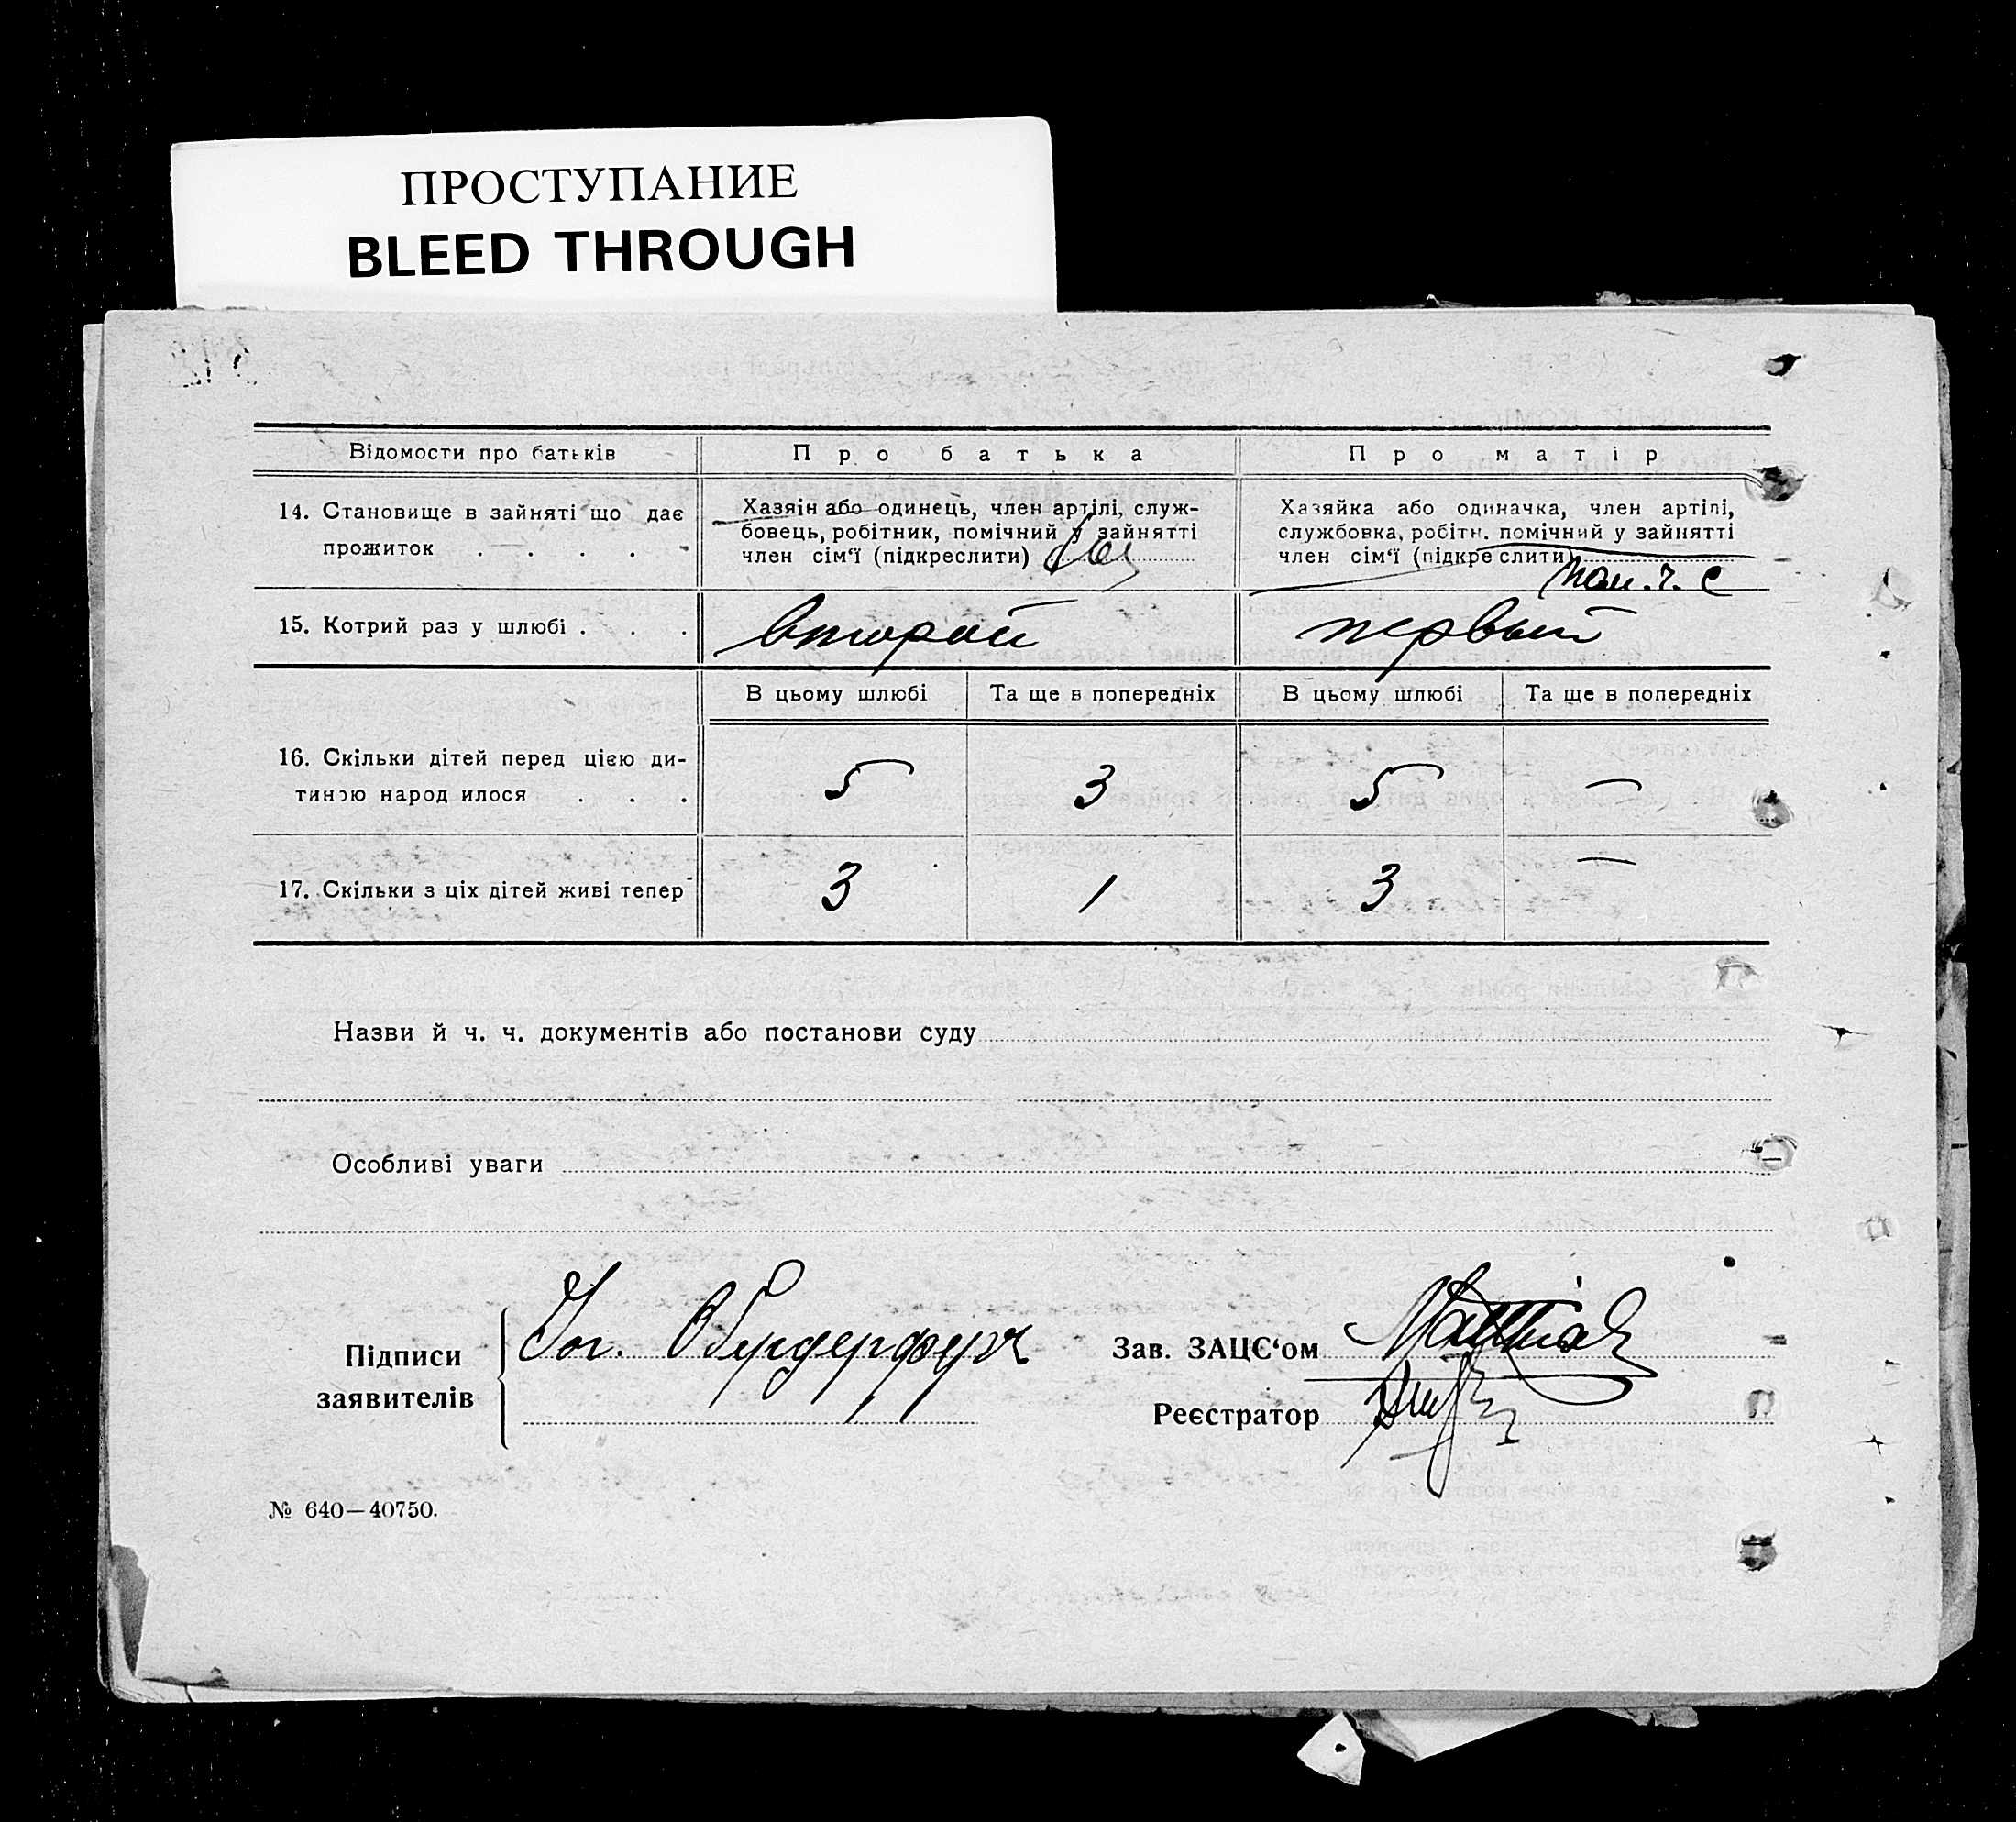 ПРОСТУПАНИЕ
BLEED THROUGH
Відомости про батьків
Про батька
Про матір
14. Становище в зайняті що дає
прожиток . . . .
Хазяін або одинець, член артілі, служ-
бовець, робітник, помічний у зайнятті
член сім'ї (підкреслити)
Хазяйка або одиначка, член артілі,
службовка, робітн. помічний у зайнятті
член сім'ї (підкреслити)
пом. ч. с
15. Котрий раз у шлюбі . . .
второй
первый
В цьому шлюбі
Та ще в попередніх
В цьому шлюбі
Та ще в попередніх
16. Скільки дітей перед цією ди-
тиною народилося . . .
5
3
5
—
17. Скільки з ціх дітей живі тепер
3
1
3
—
Назви й ч. ч. документів або постанови суду
Особливі уваги
Підписи
заявителів
Зав. ЗАЦС'ом
Реєстратор
№ 640—40750.